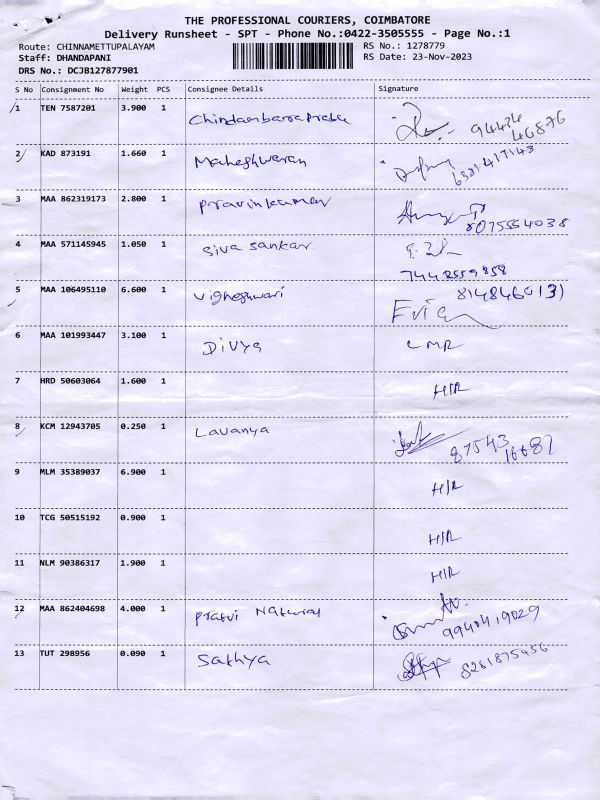 THE PROFESSIONAL COURIERS, COIMBATORE
Delivery Runsheet - SPT - Phone No.:0422-3505555 - Page No.:1
Route: CHINNAMETTUPALAYAM RS No.: 1278779
Staff: DHANDAPANI RS Date: 23-Nov-2023
DRS No.: DCJB127877901
S No Consignment No Weight PCS Consignee Details Signature
1 TEN 7587201 3.900 1 Chindambara Prabu 94424
46876
2 KAD 873191 1.660 1 Maheshwaran 6381417143
3 MAA 862319173 2.800 1 Pravinkumar 8075554038
4 MAA 571145945 1.050 1 Siva Sankar
7448559858
5 MAA 106495110 6.600 1 Vigneshwari 8148460131
6 MAA 101993447 3.100 1 Divya LMR
7 HRD 50603064 1.600 1 H/R
8 KCM 12943705 0.250 1 Lavanya 87543
16687
9 MLM 35389037 6.900 1 H/R
10 TCG 50515192 0.900 1 H/R
11 NLM 90386317 1.900 1 H/R
12 MAA 862404698 4.000 1 Natural 9940419029
13 TUT 298956 0.090 1 Sathya 8261875456